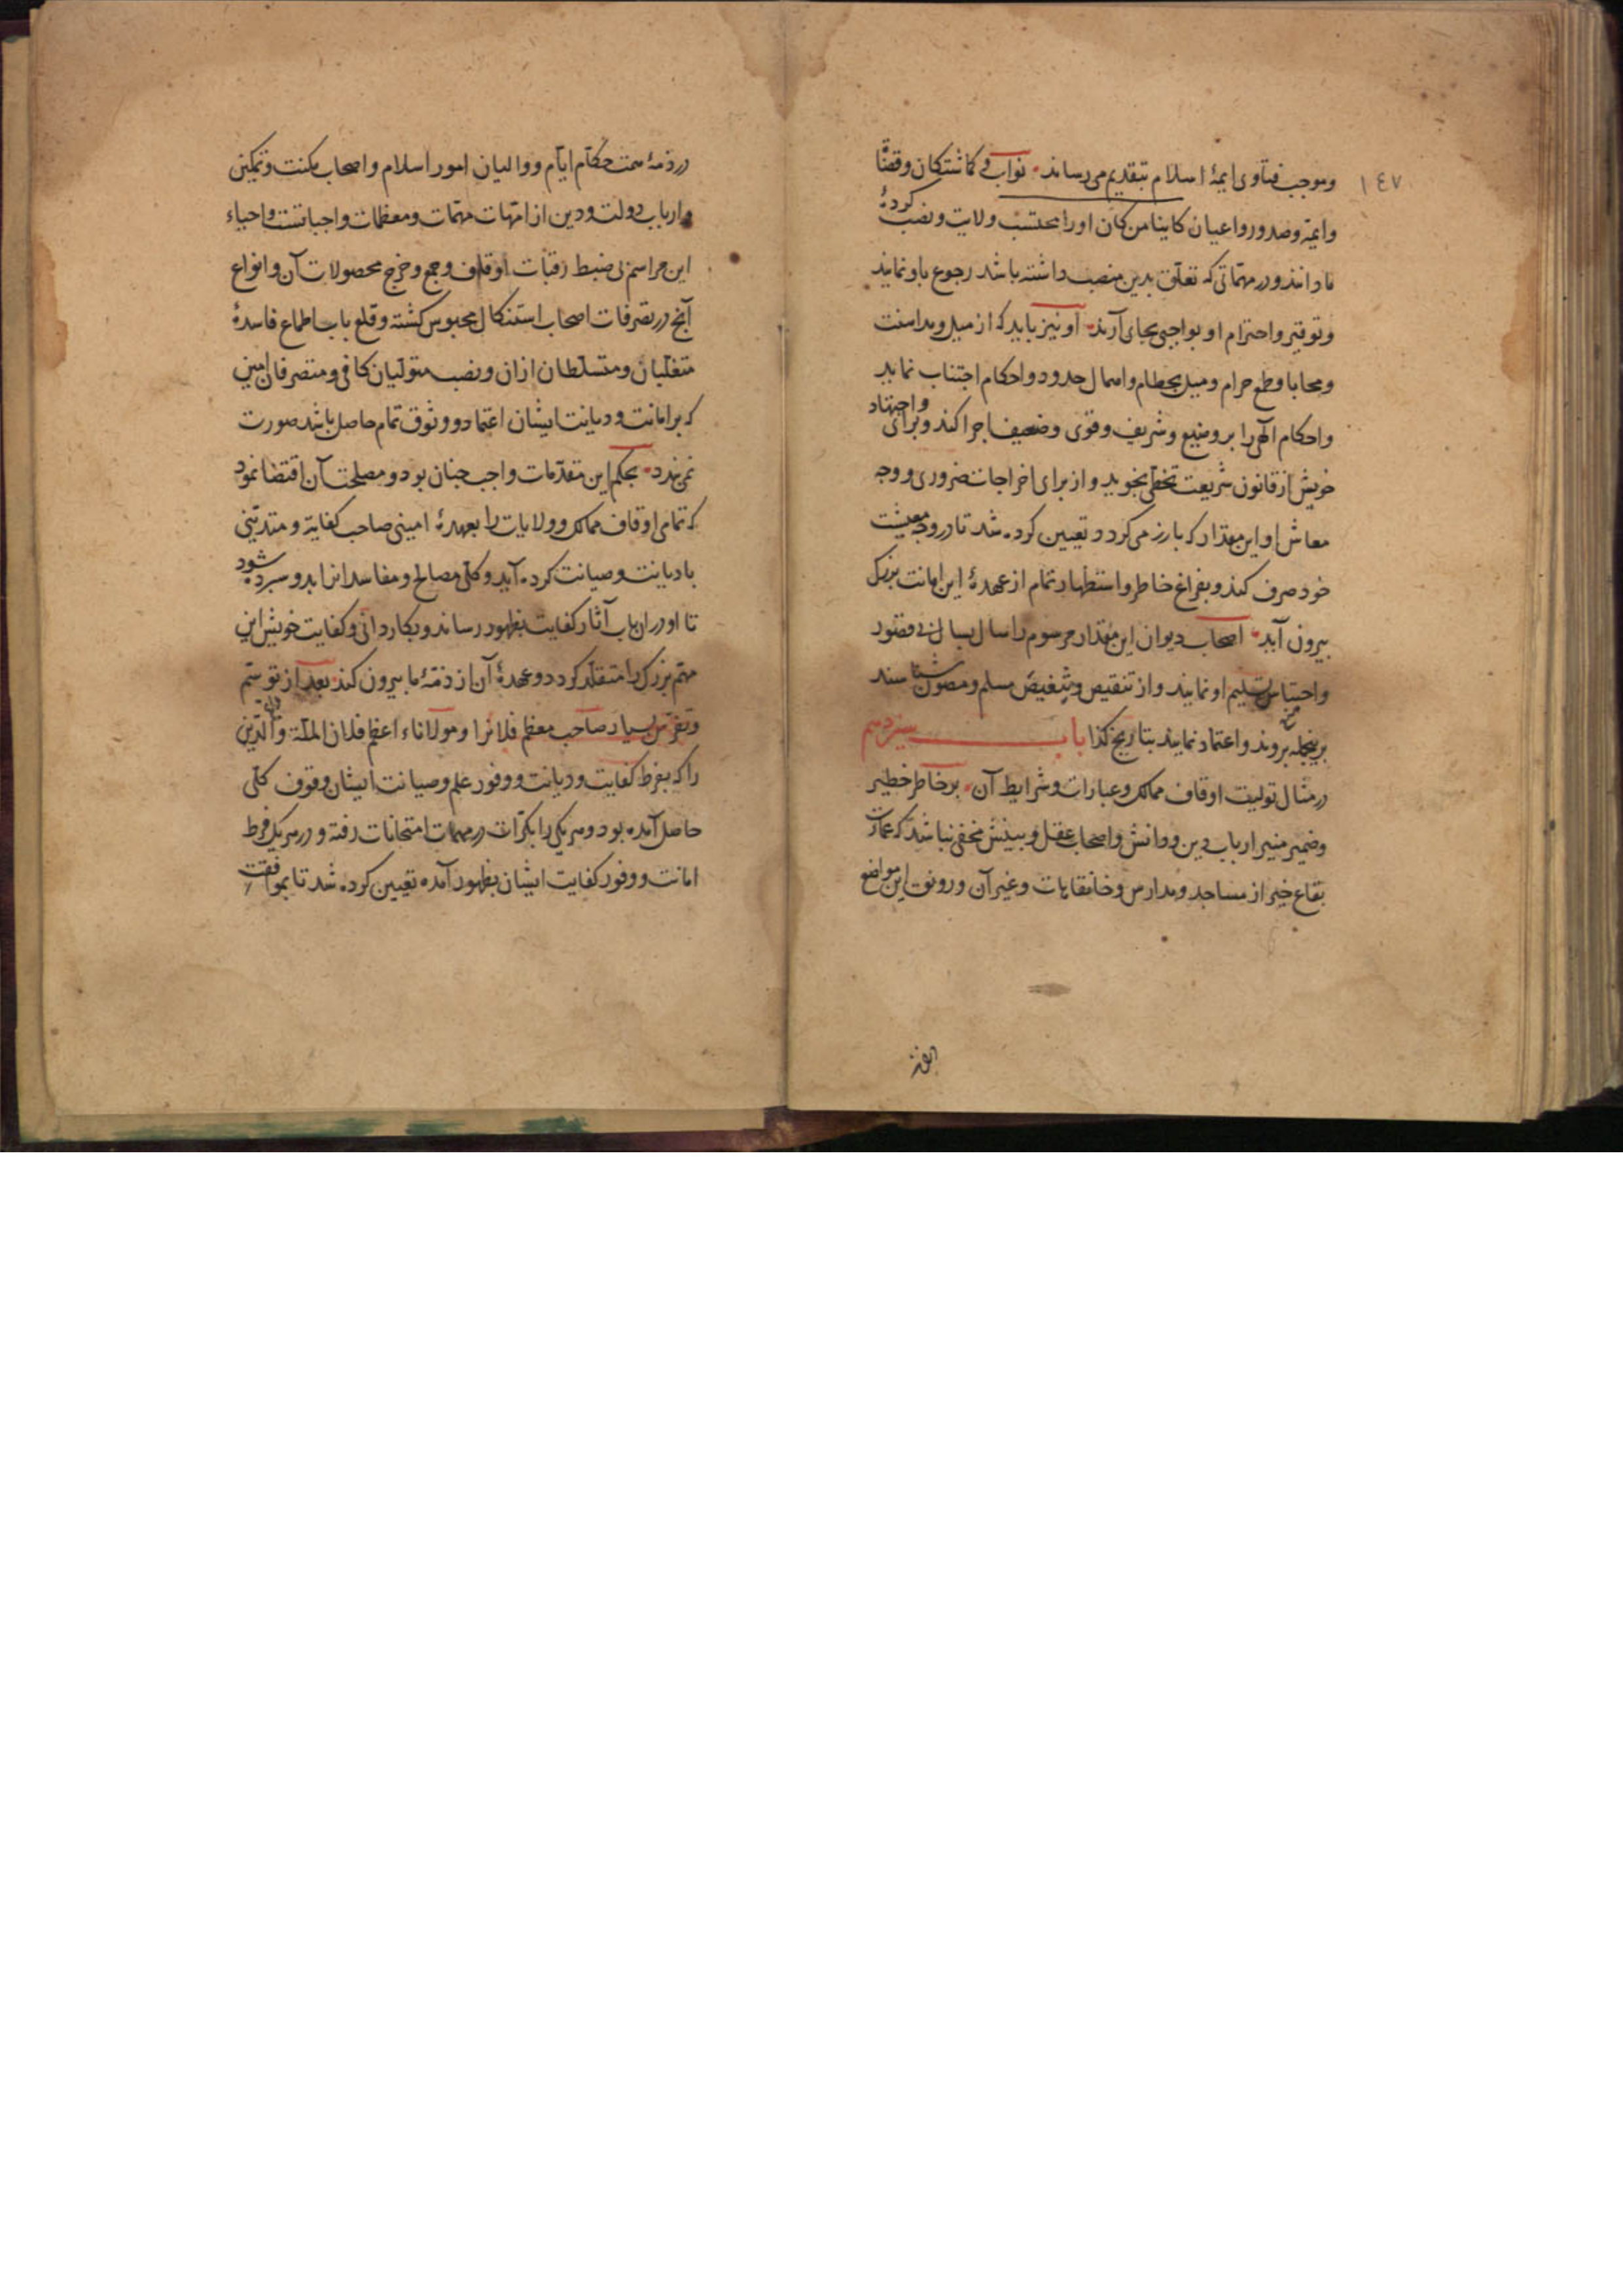 ١٤٧
وموجب فتاوی ایمهٔ اسلام بتقدیم می رساند نواب و کماشتکان وقضاة
وایمه وصدور واعیان کاینا من کان او را محتسب ولایت ونصب کردهٔ
ما دانند ودر مهماتی که تعلق بدین منصب داشته باشد رجوع باو نمایند
وتوقیر واحترام او بواجبی بجای آرند او نیز باید که از میل ومداهنت
ومحابا وطمع حرام ومیل بحطام واهمال حدود واحکام اجتناب نماید
واحکام الهی را بر وضیع وشریف وقوی وضعیف اجرا کند وبرای واجتهاد
خویش از قانون شریعت تخطی نجوید واز برای اخراجات ضروری ووجه
معاش او این مقدار که بارز می کردد تعیین کرده شد تا در وجه معیشت
خود صرف کند وبفراغ خاطر واستظهار تمام از عهدهٔ این امانت بزرک
بیرون آید اصحاب دیوان این مقدار مرسوم را سال بسال بی قصور
واحتباس تسلیم او نمایند واز تنقیص وتنغیص مسلم ومصون شناسند
برینجمله بروند واعتماد نمایند بتاریخ کذا باب سیزدهم
در مثال تولیت اوقاف ممالک وعبارات وشرایط آن بر خاطر خطیر
وضمیر منیر ارباب دین ودانش واصحاب عقل وبینش مخفی نباشد که عمارت
بقاع خیر از مساجد ومدارس وخانقاهات وغیر آن ورونق این مواضع
در ذمهٔ همت حکام ایام ووالیان امور اسلام واصحاب مکنت وتمکین
وارباب دولت ودین از امهات مهمات ومعظمات واجباتست واحیاء
این مراسم بی ضبط رقبات اوقاف وجمع وخرج محصولات آن وانواع
آنچ در تصرفات اصحاب استنکال محبوس کشته وقلع باب اطماع فاسدهٔ
متغلبان ومتسلطان ازان ونصب متولیان کافی ومتصرفان امین
که بر امانت ودیانت ایشان اعتماد ووثوق تمام حاصل باشد صورت
نمی بندد بحکم این مقدمات واجب چنان بود ومصلحت آن اقتضا نمود
که تمامی اوقاف ممالک وولایات را بعهدهٔ امینی صاحب کفایة ومتدینی
با دیانت وصیانت کرده آید وکلی مصالح ومفاسد انرا بدو سپرده شود
تا او دران باب آثار کفایت بظهور رساند وبکاردانی وکفایت خویش این
مهم بزرک را متقلد کردد وعهدهٔ آن از ذمهٔ ما بیرون کند بعد از توسم
وتفرس بسیار صاحب معظم فلانرا ومولاناء اعظم فلان الملة والدین
را که بفرط کفایت ودیانت ووفور علم وصیانت ایشان وقوف کلی
حاصل آمده بود وهر یکی را بکرات در مهمات امتحانات رفته ودر هر یک فرط
امانت ووفور کفایت ایشان بظهور آمده تعیین کرده شد تا بموافقت